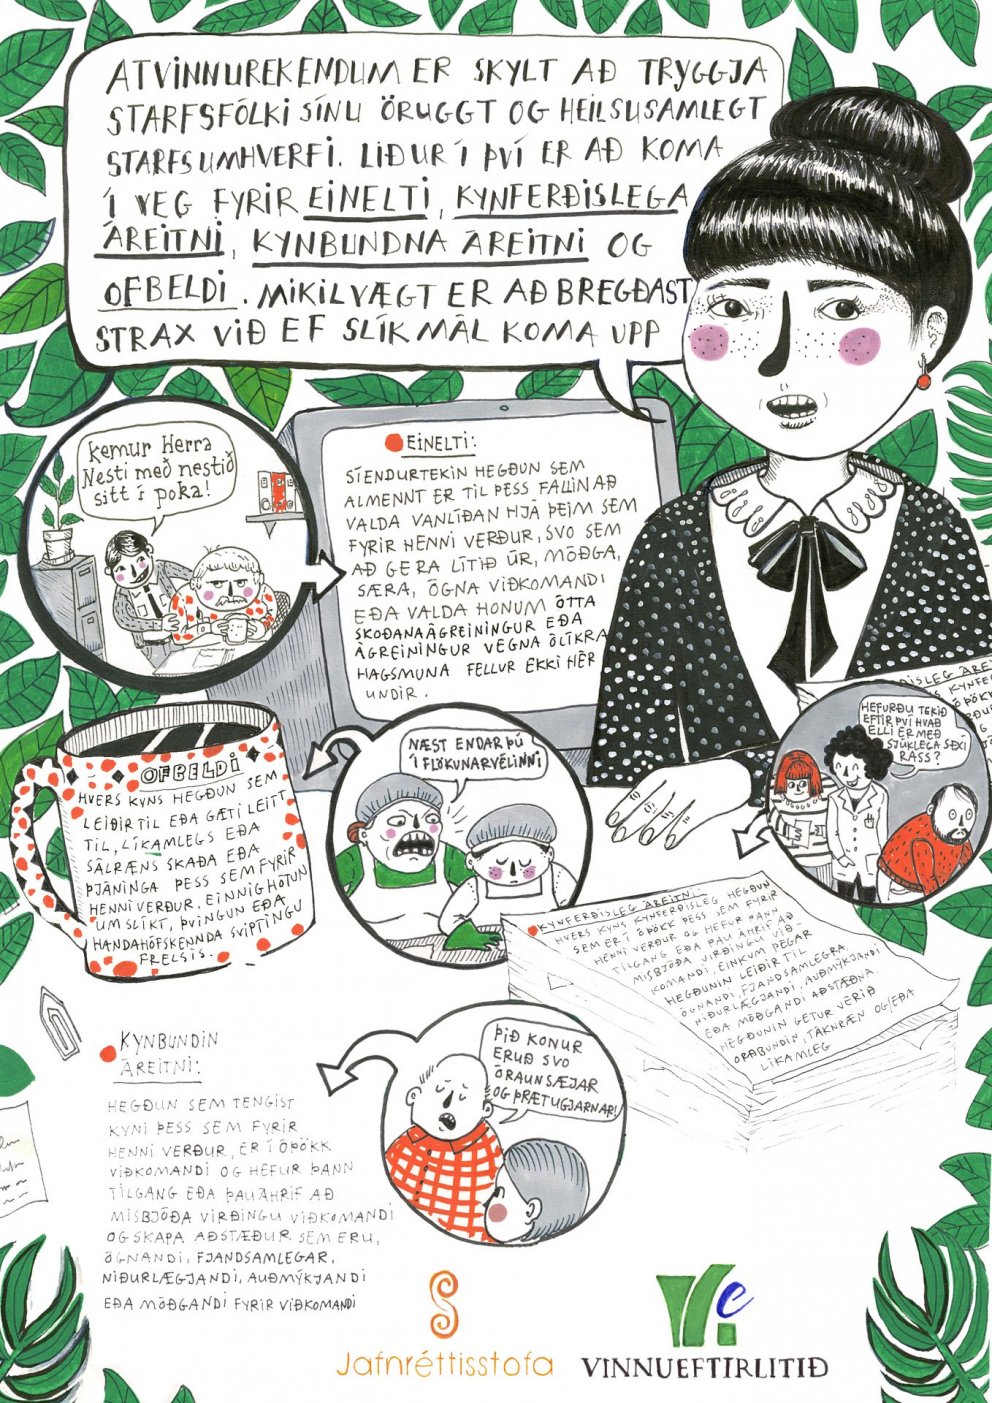 ATVINNUREKENDUM ER SKYLT AÐ TRYGGJA
STARFSFÓLKI SÍNU ÖRUGGT OG HEILSUSAMLEGT
STARFSUMHVERFI. LIÐUR Í ÞVÍ ER AÐ KOMA
Í VEG FYRIR EINELTI, KYNFERÐISLEGA
ÁREITNI, KYNBUNDNA ÁREITNI OG
OFBELDI. MIKILVÆGT ER AÐ BREGÐAST
STRAX VIÐ EF SLÍK MÁL KOMA UPP
Kemur Herra
Nesti með nestið
sitt í poka!
EINELTI:
SÍENDURTEKIN HEGÐUN SEM
ALMENNT ER TIL ÞESS FALLIN AÐ
VALDA VANLÍÐAN HJÁ ÞEIM SEM
FYRIR HENNI VERÐUR, SVO SEM
AÐ GERA LÍTIÐ ÚR, MÓÐGA,
SÆRA, ÓGNA VIÐKOMANDI
EÐA VALDA HONUM ÓTTA
SKOÐANAÁGREININGUR EÐA
ÁGREININGUR VEGNA ÓLÍKRA
HAGSMUNA FELLUR EKKI HÉR
UNDIR.
HEFURÐU TEKIÐ
EFTIR ÞVÍ HVAÐ
ELLI ER MEÐ
SJÚKLEGA SEXI
RASS?
OFBELDI
HVERS KYNS HEGÐUN SEM
LEIÐIR TIL EÐA GÆTI LEITT
TIL, LÍKAMLEGS EÐA
SÁLRÆNS SKAÐA EÐA
ÞJÁNINGA ÞESS SEM FYRIR
HENNI VERÐUR, EINNIG HÓTUN
UM SLÍKT, ÞVINGUN EÐA
HANDAHÓFSKENNDA SVIPTINGU
FRELSIS.
NÆST ENDAR ÞÚ
Í FLÖKUNARVÉLINNI
KYNFERÐISLEG ÁREITNI:
HVERS KYNS KYNFERÐISLEG HEGÐUN
SEM ER Í ÓÞÖKK ÞESS SEM FYRIR
HENNI VERÐUR OG HEFUR ÞANN
TILGANG EÐA ÞAU ÁHRIF AÐ
MISBJÓÐA VIRÐINGU VIÐ-
KOMANDI, EINKUM ÞEGAR
HEGÐUNIN LEIÐIR TIL
ÓGNANDI, FJANDSAMLEGRA,
NIÐURLÆGJANDI, AUÐMÝKJANDI
EÐA MÓÐGANDI AÐSTÆÐNA.
HEGÐUNIN GETUR VERIÐ
ORÐBUNDIN, TÁKNRÆN OG/EÐA
LÍKAMLEG
KYNBUNDIN
ÁREITNI:
HEGÐUN SEM TENGIST
KYNI ÞESS SEM FYRIR
HENNI VERÐUR, ER Í ÓÞÖKK
VIÐKOMANDI OG HEFUR ÞANN
TILGANG EÐA ÞAU ÁHRIF AÐ
MISBJÓÐA VIRÐINGU VIÐKOMANDI
OG SKAPA AÐSTÆÐUR SEM ERU,
ÓGNANDI, FJANDSAMLEGAR,
NIÐURLÆGJANDI, AUÐMÝKJANDI
EÐA MÓÐGANDI FYRIR VIÐKOMANDI
ÞIÐ KONUR
ERUÐ SVO
ÓRAUNSÆJAR
OG ÞRÆTUGJARNAR!
Jafnréttisstofa
VINNUEFTIRLITIÐ